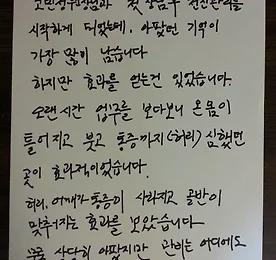 시작하게 되었는데, 아팠던 기억이
가장 많이 남습니다
하지만 효과를 얻는건 있었습니다.
오랜시간 업무를 보다보니 온몸이
틀어지고 붓고 통증까지(허리) 심했던
곳이 효과적이었습니다.
허리, 어깨가 통증이 사라지고 골반이
맞춰지는 효과를 보았습니다
상당히 아팠지만 관리는 어디에도